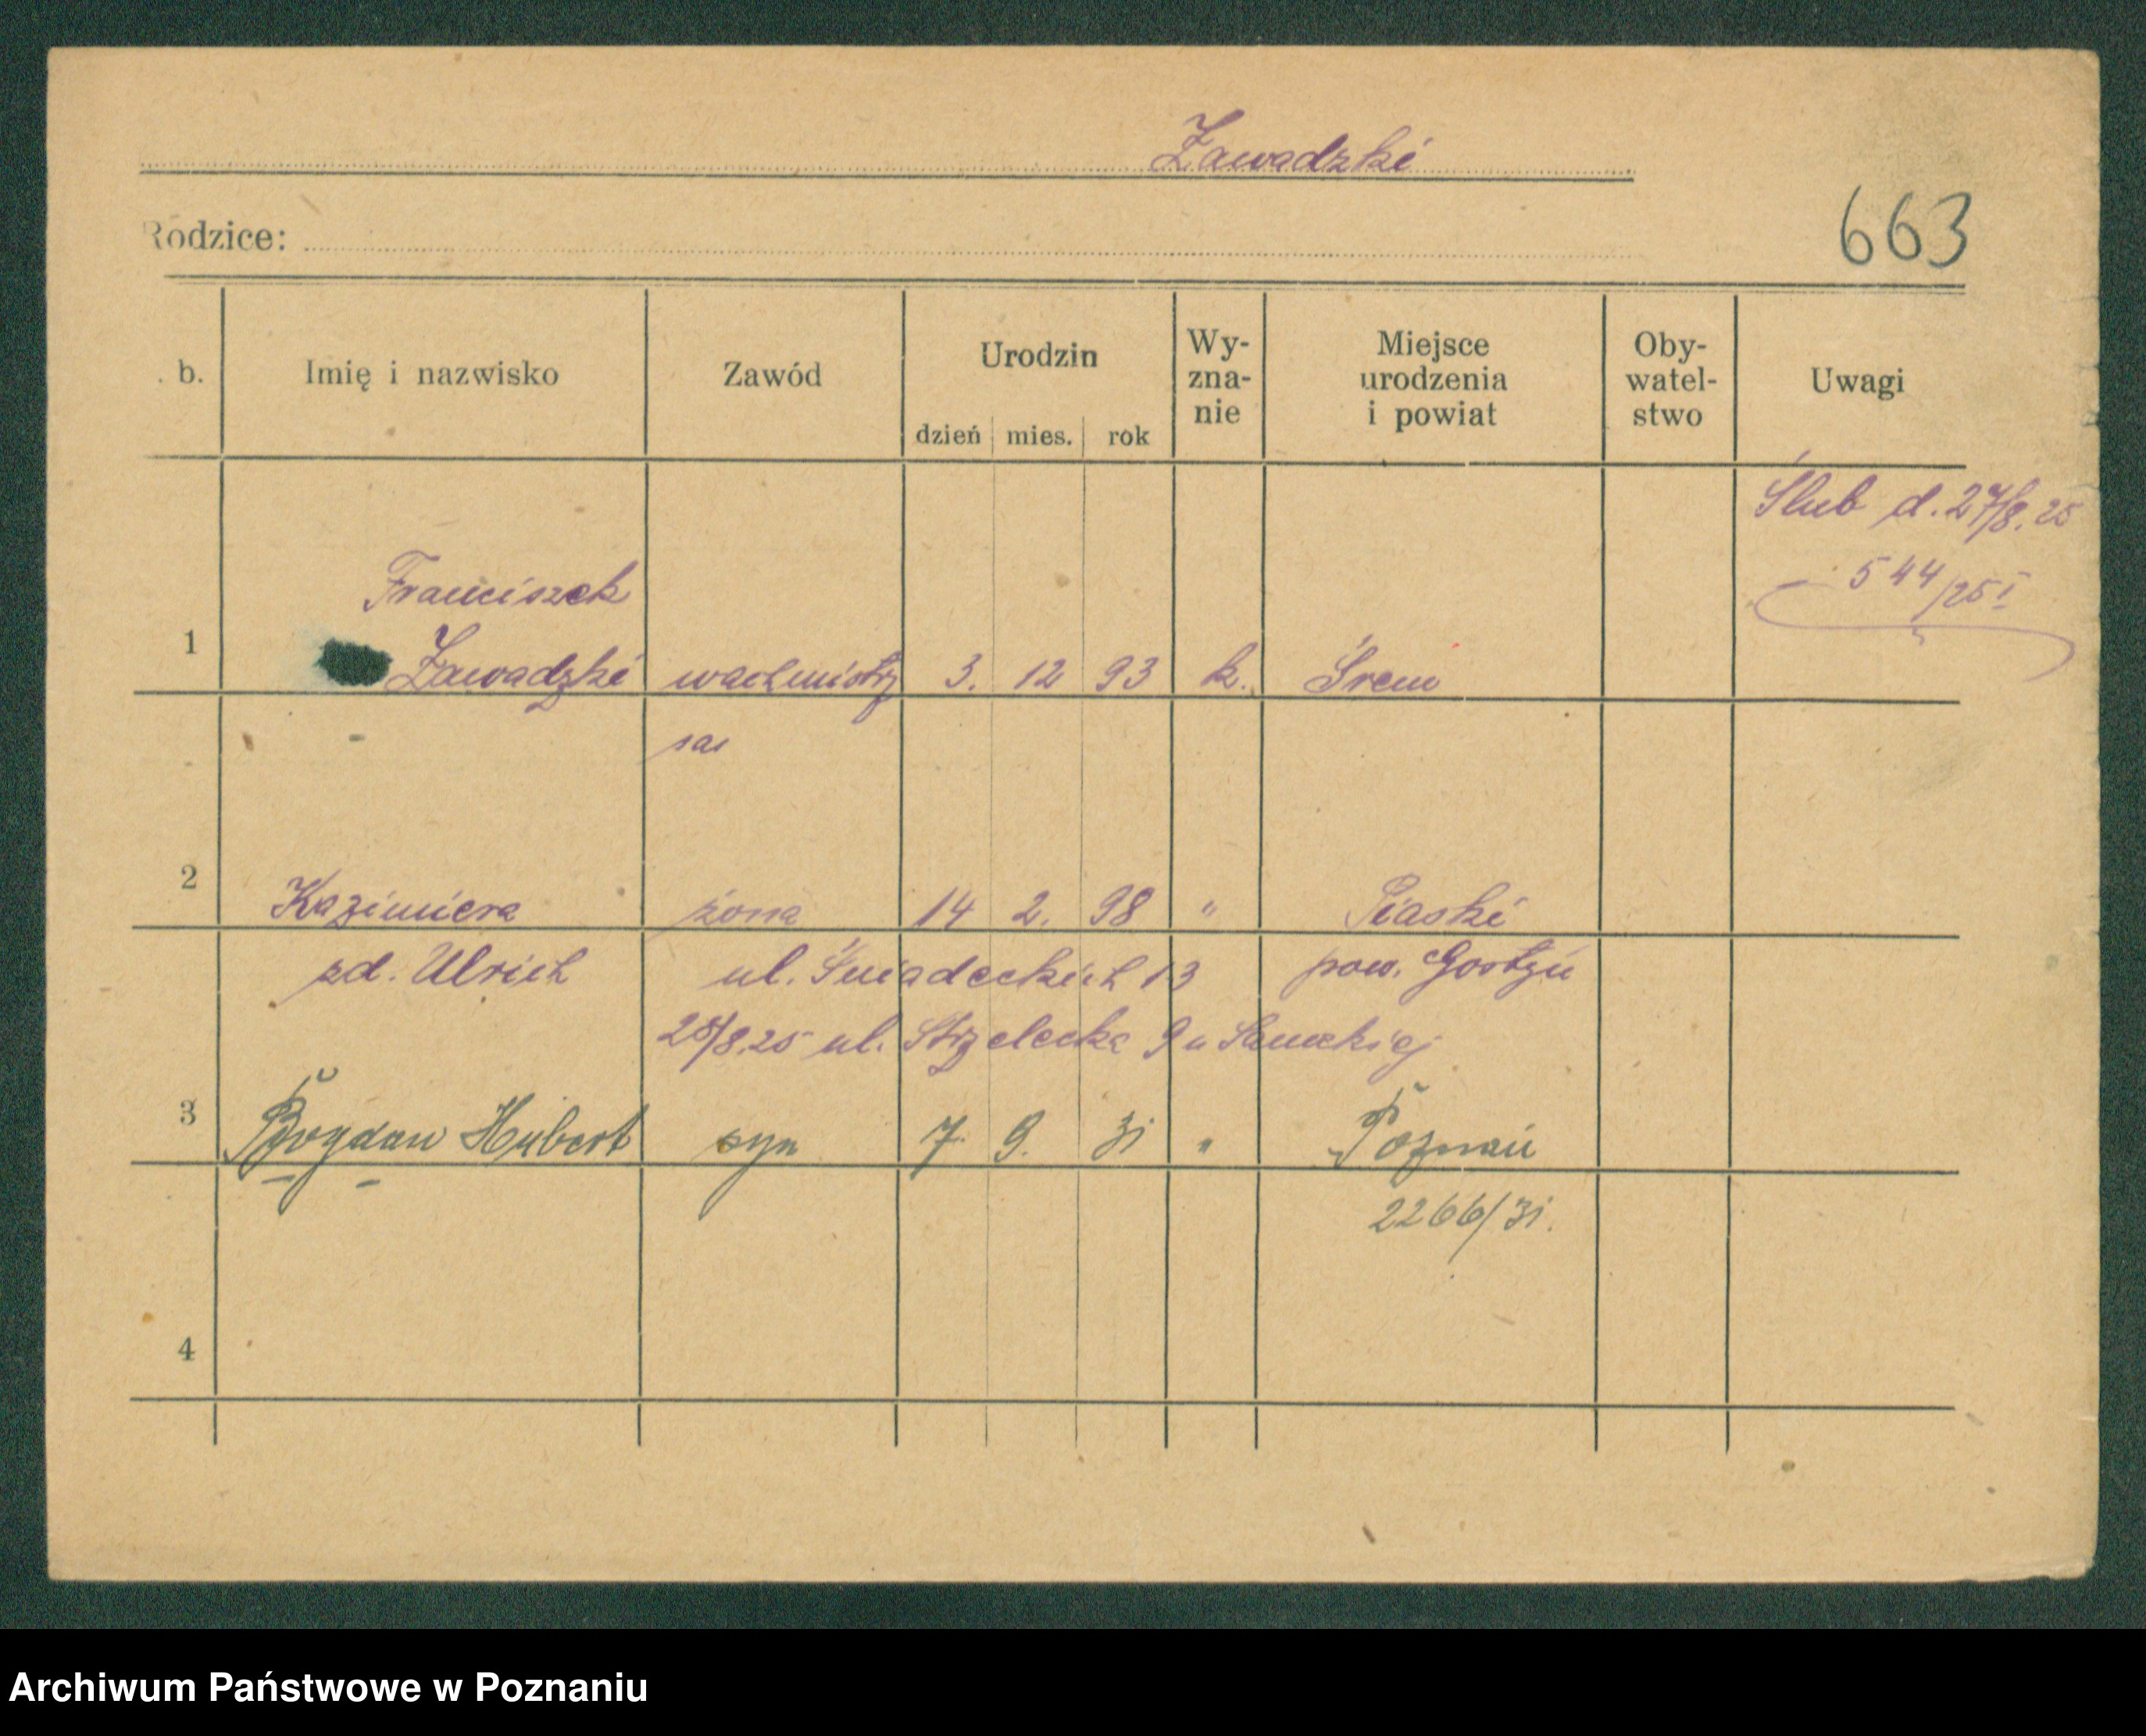 Zawadzki
Rodzice:
663
b. Imię i nazwisko Zawód Urodzin dzień mies. rok Wy-zna-nie Miejsce urodzenia i powiat Oby-watel-stwo Uwagi
Ślub d. 27/8. 25
544/25 I
Franciszek
1 Zawadzki wachmistrz 3. 12 93 k. Śrem
2 Kazimiera żona 14 2. 98 " Piaski
zd. Ulrich ul. Śniadeckich 13 pow. Gostyń
28/8.25 ul. Strzelecka 9 u
3 Bogdan Hubert syn 7. 9. 31 " Poznań
2266/31.
4
Archiwum Państwowe w Poznaniu